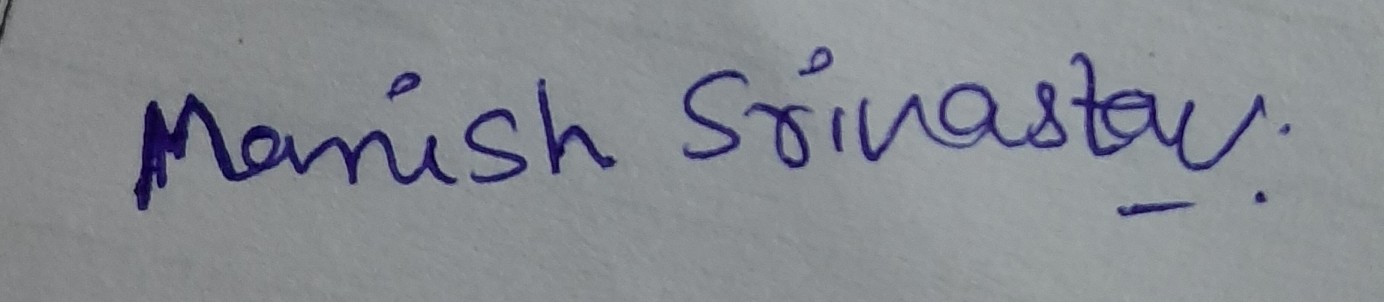 Manish Srivastav.